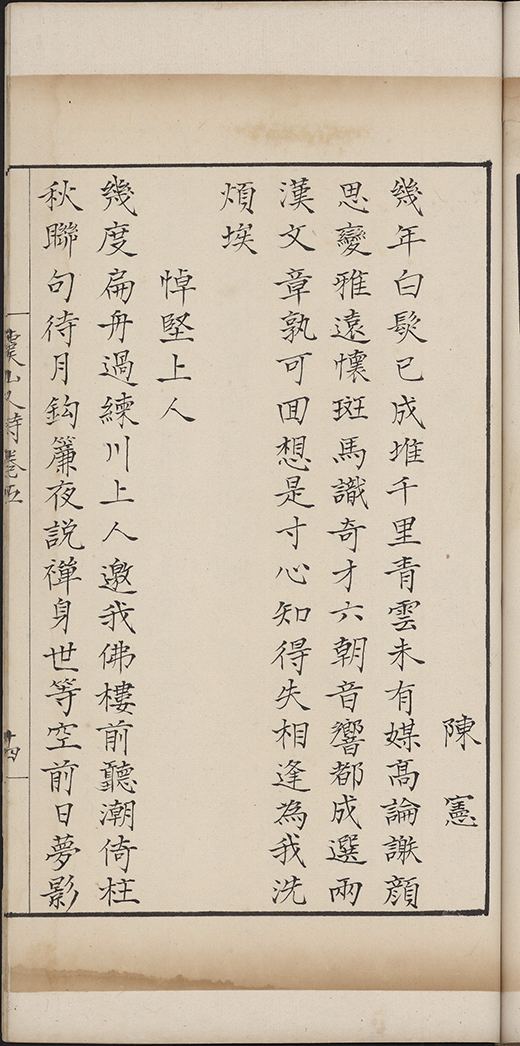 陳憲
幾年白髮已成堆千里青雲未有媒高論謝顔
思變雅遠懷班馬識奇才六朝音響都成選兩
漢文章孰可回想是寸心知得失相逢為我洗
煩埃
悼堅上人
幾度扁舟過練川上人邀我佛樓前聽潮倚柱
秋聯句待月鈎簾夜説禪身世等空前日夢影
人詩卷五
十四